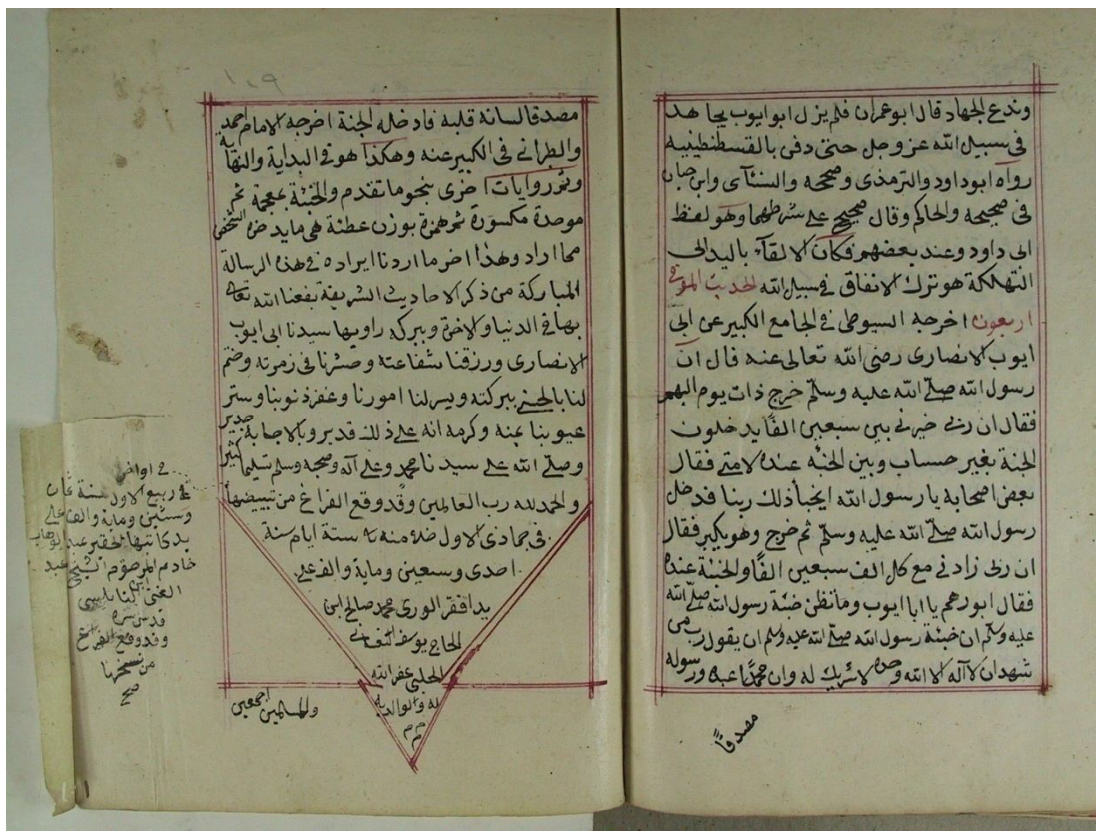 وندع الجهاد قال ابو عمران فلم يزل ابو ايوب يجاهد
في سبيل الله عز وجل حتى دفن بالقسطنطينيه
رواه ابو داود والترمذى وصححه والنسآى وابن حبان
فى صحيحه والحاكم وقال صحيح على شرطهما وهو لفظ
ابى داود وعند بعضهم فكان الالقآء باليد الى
التهلكة هو ترك الانفاق في سبيل الله الحديث الموفى
اربعون اخرجه السيوطى في الجامع الكبير عن ابى
ايوب الانصارى رضى الله تعالى عنه قال ان
رسول الله صلى الله عليه وسلم خرج ذات يوم اليهم
فقال ان ربى خيرنى بين سبعين الفًا يدخلون
الجنة بغير حساب وبين الخبئه عنده لامتى فقال
بعض اصحابه يا رسول الله ايخبأ ذلك ربنا فدخل
رسول الله صلى الله عليه وسلم ثم خرج وهو يكبر فقال
ان ربى زادنى مع كل الف سبعين الفًا والخبئة عنده
فقال ابو رهم يا ابا ايوب وما تظن خبئة رسول الله صلى الله
عليه وسلم ان خبئة رسول الله صلى الله عليه وسلم ان يقول رب من
شهد ان لا آله الا الله وحده لا شريك له وان محمدًا عبده ورسوله
مصدقًا
١٠٩
مصدقا لسانه قلبه فادخله الجنة اخرجه الامام احمد
والطبرانى فى الكبير عنه وهكذا هو في البداية والنهاية
وثم روايات اخرى بنحو ما تقدم والخبئة بمعجمة ثم
موحدة مكسورة ثم همزة بوزن عطئة هي ما يدخره الشخص
مما اراد وهذا اخر ما اردنا ايراده في هذه الرسالة
المباركة من ذكر الاحاديث الشريفة نفعنا الله تعالى
بها في الدنيا والاخرة وببركه راويها سيدنا ابى ايوب
الانصارى ورزقنا شفاعته وحشرنا فى زمرته وختم
لنا بالحسنى ببركته ويسر لنا امورنا وغفر ذنوبنا وستر
عيوبنا بمنه وكرمه انه على ذلك قدير وبالاجابة جدير
وصلى الله على سيدنا محمد وعلى آله وصحبه وسلم تسليما كثيرا
والحمد لله رب العالمين وقد وقع الفراغ من تبييضها
فى جمادى الاول منه ستة ايام سنة
احدى وسبعين وماية والف على
يد افقر الورى محمد صالح ابن
الحاج يوسف
الحلبي غفر الله
له ولوالديه
والمسلمين اجمعين
في اواخر
ربيع الاول سنة ثمان
وستين وماية والف على
يد كاتبها الحقير عبد الوهاب
خادم المرحوم الشيخ عبد
الغنى النابلسى
قدس سره
وقد وقع الفراغ
من
صح